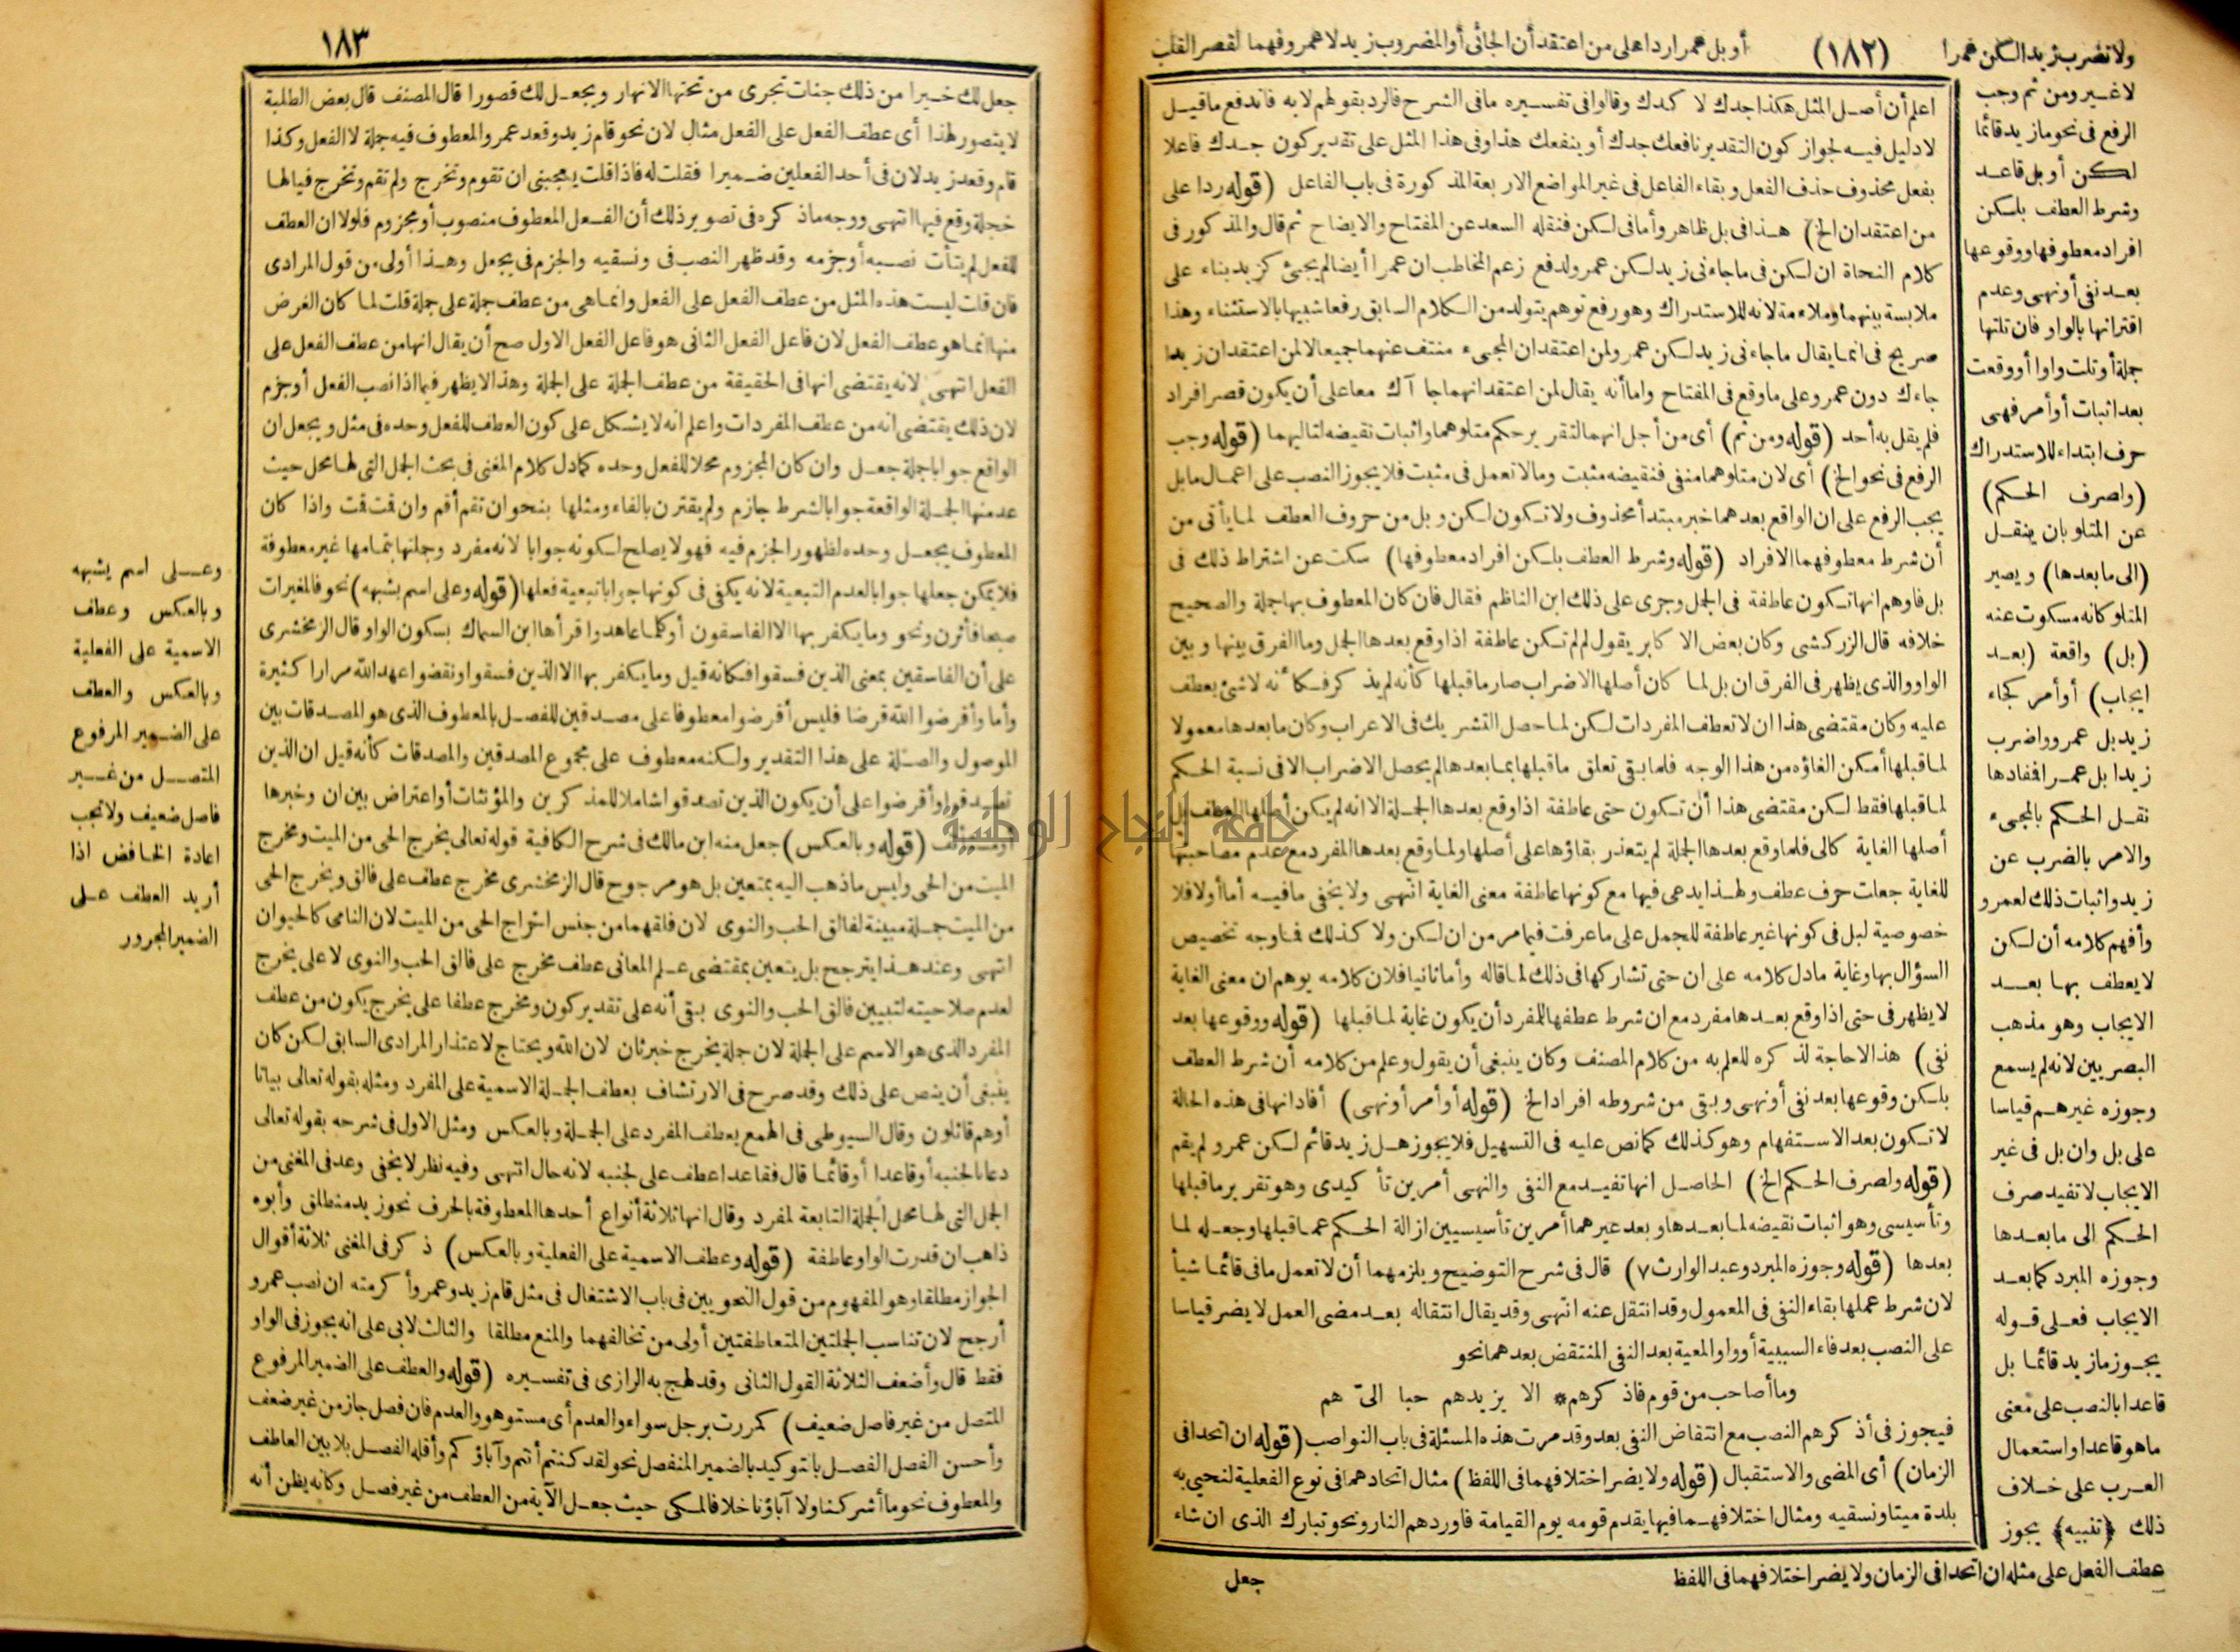 ولا تضرب زيدا لكن عمرا (١٨٢) أو بل عمرا ردا على من اعتقد أن الجائى أو المضروب زيد لا عمرو فهما لقصر القلب
لا غير ومن ثم وجب
الرفع فى نحو ما زيد قائما
لكن أو بل قاعد
وشرط العطف بلكن
افراد معطوفها ووقوعها
بعد نفى أو نهى وعدم
اقترانها بالواو فان تلتها
جملة أو تلت واوا أو وقعت
بعد اثبات أو أمر فهى
حرف ابتداء للاستدراك
(واصرف الحكم)
عن المتلو بان ينقل
(الى ما بعدها) ويصير
المتلو كانه مسكوت عنه
(بل) واقعة (بعد
ايجاب) أو أمر كجاء
زيد بل عمرو واضرب
زيدا بل عمرا ففادها
نقل الحكم بالمجىء
والامر بالضرب عن
زيد واثبات ذلك لعمرو
وأفهم كلامه أن لكن
لا يعطف بها بعد
الايجاب وهو مذهب
البصريين لانه لم يسمع
وجوزه غيرهم قياسا
على بل وان بل فى غير
الايجاب لا تفيد صرف
الحكم الى ما بعدها
وجوزه المبرد كما بعد
الايجاب فعلى قوله
يجوز ما زيد قائما بل
قاعدا بالنصب على معنى
ما هو قاعدا واستعمال
العرب على خلاف
ذلك ﴿تنبيه﴾ يجوز
عطف الفعل على مثله ان اتحدا فى الزمان ولا يضر اختلافهما فى اللفظ
اعلم أن أصل المثل هكذا جدك لا كدك وقالوا فى تفسيره ما فى الشرح فالرد بقولهم لا به فاندفع ما قيل
لا دليل فيه لجواز كون التقدير نافعك جدك أو ينفعك هذا وفى هذا المثل على تقدير كون جدك فاعلا
بفعل محذوف حذف الفعل وبقاء الفاعل فى غير المواضع الاربعة المذكورة فى باب الفاعل (قوله ردا على
من اعتقد ان الخ) هذا فى بل ظاهر وأما فى لكن فنقله السعد عن المفتاح والايضاح ثم قال والمذكور فى
كلام النحاة ان لكن فى ما جاءنى زيد لكن عمرو لدفع زعم المخاطب ان عمرا أيضا لم يجئ كزيد بناء على
ملابسة بينهما وملاءمة لانه للاستدراك وهو رفع توهم يتولد من الكلام السابق رفعا شبيها بالاستثناء وهذا
صريح فى انما يقال ما جاءنى زيد لكن عمرو لمن اعتقد ان المجىء منتف عنهما جميعا لا لمن اعتقد ان زيدا
جاءك دون عمرو على ما وقع فى المفتاح واما أنه يقال لمن اعتقد انهما جا آك معا على أن يكون قصر افراد
فلم يقل به أحد (قوله ومن ثم) أى من أجل انهما لتقرير حكم متلوهما واثبات نقيضه لتاليهما (قوله وجب
الرفع فى نحو الخ) أى لان متلوهما منفى فنقيضه مثبت وما لا تعمل فى مثبت فلا يجوز النصب على اعمال ما بل
يجب الرفع على ان الواقع بعدهما خبر مبتدأ محذوف ولا تكون لكن وبل من حروف العطف لما يأتى من
أن شرط معطوفهما الافراد (قوله وشرط العطف بلكن افراد معطوفها) سكت عن اشتراط ذلك فى
بل فاوهم انها تكون عاطفة فى الجمل وجرى على ذلك ابن الناظم فقال فان كان المعطوف بها جملة والصحيح
خلافه قال الزركشى وكان بعض الاكابر يقول لم لم تكن عاطفة اذا وقع بعدها الجمل وما الفرق بينها وبين
الواو والذى يظهر فى الفرق ان بل لما كان أصلها الاضراب صار ما قبلها كأنه لم يذكر فكأنه لا شئ يعطف
عليه وكان مقتضى هذا ان لا تعطف المفردات لكن لما حصل التشريك فى الاعراب وكان ما بعدها معمولا
لما قبلها أمكن الغاؤه من هذا الوجه فلما بقى تعلق ما قبلها بما بعدها لم يحصل الاضراب الا فى نسبة الحكم
لما قبلها فقط لكن مقتضى هذا أن تكون حتى عاطفة اذا وقع بعدها الجملة الا انه لم يكن أصلها العطف بل
أصلها الغاية كالى فلما وقع بعدها الجملة لم يتعذر بقاؤها على أصلها ولما وقع بعدها المفرد مع عدم مصاحبتها
للغاية جعلت حرف عطف ولهذا يدعى فيها مع كونها عاطفة معنى الغاية انتهى ولا يخفى ما فيه أما أولا فلا
خصوصية لبل فى كونها غير عاطفة للجمل على ما عرفت فيما مر من ان لكن ولا كذلك فما وجه تخصيص
السؤال بها وغاية ما دل كلامه على ان حتى تشاركها فى ذلك لما قاله وأما ثانيا فلان كلامه يوهم ان معنى الغاية
لا يظهر فى حتى اذا وقع بعدها مفرد مع ان شرط عطفها للمفرد أن يكون غاية لما قبلها (قوله ووقوعها بعد
نفى) هذا لا حاجة لذكره للعلم به من كلام المصنف وكان ينبغى أن يقول وعلم من كلامه أن شرط العطف
بلكن وقوعها بعد نفى أو نهى وبقى من شروطه افراد الخ (قوله أو أمر أو نهى) أفاد انها فى هذه الحالة
لا تكون بعد الاستفهام وهو كذلك كما نص عليه فى التسهيل فلا يجوز هل زيد قائم لكن عمرو لم يقم
(قوله ولصرف الحكم الخ) الحاصل انها تفيد مع النفى والنهى أمرين تأكيدى وهو تقرير ما قبلها
وتأسيسى وهو اثبات نقيضه لما بعدها وبعد غيرهما أمرين تأسيسيين ازالة الحكم عما قبلها وجعله لما
بعدها (قوله وجوزه المبرد وعبد الوارث ٧) قال فى شرح التوضيح ويلزمهما أن لا تعمل ما فى قائما شيأ
لان شرط عملها بقاء النفى فى المعمول وقد انتقل عنه انتهى وقد يقال انتقاله بعد مضى العمل لا يضر قياسا
على النصب بعد فاء السببية أو واو المعية بعد النفى المنتقض بعدهما نحو
وما أصاحب من قوم فاذكرهم * الا يزيدهم حبا الىّ هم
فيجوز فى أذكرهم النصب مع انتقاض النفى بعد وقد مرت هذه المسئلة فى باب النواصب (قوله ان اتحدا فى
الزمان) أى المضى والاستقبال (قوله ولا يضر اختلافهما فى اللفظ) مثال اتحادهما فى نوع الفعلية لنحيى به
بلدة ميتا ونسقيه ومثال اختلافهما فيها يقدم قومه يوم القيامة فاوردهم النار ونحو تبارك الذى ان شاء
جعل
١٨٣
جعل لك خيرا من ذلك جنات تجرى من تحتها الانهار ويجعل لك قصورا قال المصنف قال بعض الطلبة
لا يتصور لهذا أى عطف الفعل على الفعل مثال لان نحو قام زيد وقعد عمرو المعطوف فيه جملة لا الفعل وكذا
قام وقعد زيد لان فى أحد الفعلين ضميرا فقلت له فاذا قلت يعجبنى ان تقوم وتخرج ولم تقم وتخرج فيالها
خجلة وقع فيها انتهى ووجه ما ذكره فى تصوير ذلك أن الفعل المعطوف منصوب أو مجزوم فلولا ان العطف
للفعل لم يتأت نصبه أو جزمه وقد ظهر النصب فى ونسقيه والجزم فى يجعل وهذا أولى من قول المرادى
فان قلت ليست هذه المثل من عطف الفعل على الفعل وانما هى من عطف جملة على جملة قلت لما كان الغرض
منها انما هو عطف الفعل لان فاعل الفعل الثانى هو فاعل الفعل الاول صح أن يقال انها من عطف الفعل على
الفعل انتهى لانه يقتضى انها فى الحقيقة من عطف الجملة على الجملة وهذا لا يظهر فيما اذا نصب الفعل أو جزم
لان ذلك يقتضى انه من عطف المفردات واعلم انه لا يشكل على كون العطف للفعل وحده فى مثل ويجعل ان
الواقع جوابا جملة جعل وان كان المجزوم محلا للفعل وحده كما دل كلام المغنى فى بحث الجمل التى لها محل حيث
عد منها الجملة الواقعة جوابا لشرط جازم ولم يقترن بالفاء ومثلها بنحو ان تقم أقم وان قمت قمت واذا كان
المعطوف يجعل وحده لظهور الجزم فيه فهو لا يصلح لكونه جوابا لانه مفرد وجملتها بتمامها غير معطوفة
فلا يمكن جعلها جوابا لعدم التبعية لانه يكفى فى كونها جوابا تبعية فعلها (قوله وعلى اسم يشبهه) نحو فالمغيرات
صبحا فأثرن ونحو وما يكفر بها الا الفاسقون أو كلما عاهدوا قرأها ابن السماك بسكون الواو قال الزمخشرى
على أن الفاسقين بمعنى الذين فسقوا فكانه قيل وما يكفر بها الا الذين فسقوا ونقضوا عهد الله مرارا كثيرة
وأما وأقرضوا الله قرضا فليس أقرضوا معطوفا على مصدقين للفصل بالمعطوف الذى هو المصدقات بين
الموصول والصلة على هذا التقدير ولكنه معطوف على مجموع المصدقين والمصدقات كأنه قيل ان الذين
تصدقوا وأقرضوا على أن يكون الذين تصدقوا شاملا للمذكرين والمؤنثات أو اعتراض بين ان وخبرها
(قوله وبالعكس) جعل منه ابن مالك فى شرح الكافية قوله تعالى يخرج الحى من الميت ومخرج
الميت من الحى وليس ما ذهب اليه بمتعين بل هو مرجوح قال الزمخشرى مخرج عطف على فالق ويخرج الحى
من الميت جملة مبينة لفالق الحب والنوى لان فلقهما من جنس اخراج الحى من الميت لان النامى كالحيوان
انتهى وعند هذا يترجح بل يتعين بمقتضى علم المعانى عطف مخرج على فالق الحب والنوى لا على يخرج
لعدم صلاحيته لتبيين فالق الحب والنوى بقى أنه على تقدير كون ومخرج عطفا على يخرج يكون من عطف
المفرد الذى هو الاسم على الجملة لان جملة يخرج خبر ثان لان الله ويحتاج لاعتذار المرادى السابق لكن كان
ينبغى أن ينص على ذلك وقد صرح فى الارتشاف بعطف الجملة الاسمية على المفرد ومثله بقوله تعالى بياتا
أو هم قائلون وقال السيوطى فى الهمع يعطف المفرد على الجملة وبالعكس ومثل الاول فى شرحه بقوله تعالى
دعانا لجنبه أو قاعدا أو قائما قال فقاعدا عطف على لجنبه لانه حال انتهى وفيه نظر لا يخفى وعد فى المغنى من
الجمل التى لها محل الجملة التابعة لمفرد وقال انها ثلاثة أنواع أحدها المعطوفة بالحرف نحو زيد منطلق وأبوه
ذاهب ان قدرت الواو عاطفة (قوله وعطف الاسمية على الفعلية وبالعكس) ذكر فى المغنى ثلاثة أقوال
الجواز مطلقا وهو المفهوم من قول النحويين فى باب الاشتغال فى مثل قام زيد وعمرو أكرمته ان نصب عمرو
أرجح لان تناسب الجملتين المتعاطفتين أولى من تخالفهما والمنع مطلقا والثالث لابى على انه يجوز فى الواو
فقط قال وأضعف الثلاثة القول الثانى وقد لهج به الرازى فى تفسيره (قوله والعطف على الضمير المرفوع
المتصل من غير فاصل ضعيف) كمررت برجل سواء والعدم أى مستو هو والعدم فان فصل جاز من غير ضعف
وأحسن الفصل الفصل بالتوكيد بالضمير المنفصل نحو لقد كنتم أنتم وآباؤكم وأقله الفصل بلا بين العاطف
والمعطوف نحو ما أشركنا ولا آباؤنا خلافا لمكى حيث جعل الآية من العطف من غير فصل وكانه يظن أنه
وعلى اسم يشبهه
وبالعكس وعطف
الاسمية على الفعلية
وبالعكس والعطف
على الضمير المرفوع
المتصل من غير
فاصل ضعيف ولا تجب
اعادة الخافض اذا
أريد العطف على
الضمير المجرور
جامعة النجاح الوطنية